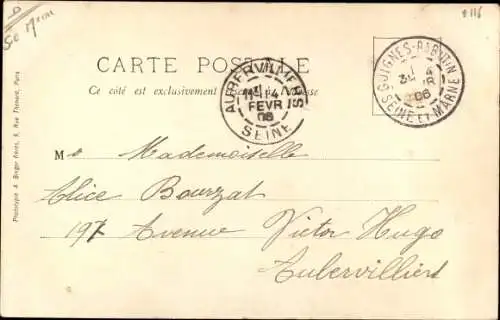 2116
CARTE POSTALE
Ce côté est exclusivement à l'adresse
AUBERVILLIERS
14
FEVR
06
SEINE
GUIGNES-RABUTIN
4
06
SEINE ET MARNE
M Mademoiselle
Alice Bourzat
197 Avenue Victor Hugo
Aubervilliers
Phototypie A. Berger frères, 9, Rue Thénard, Paris